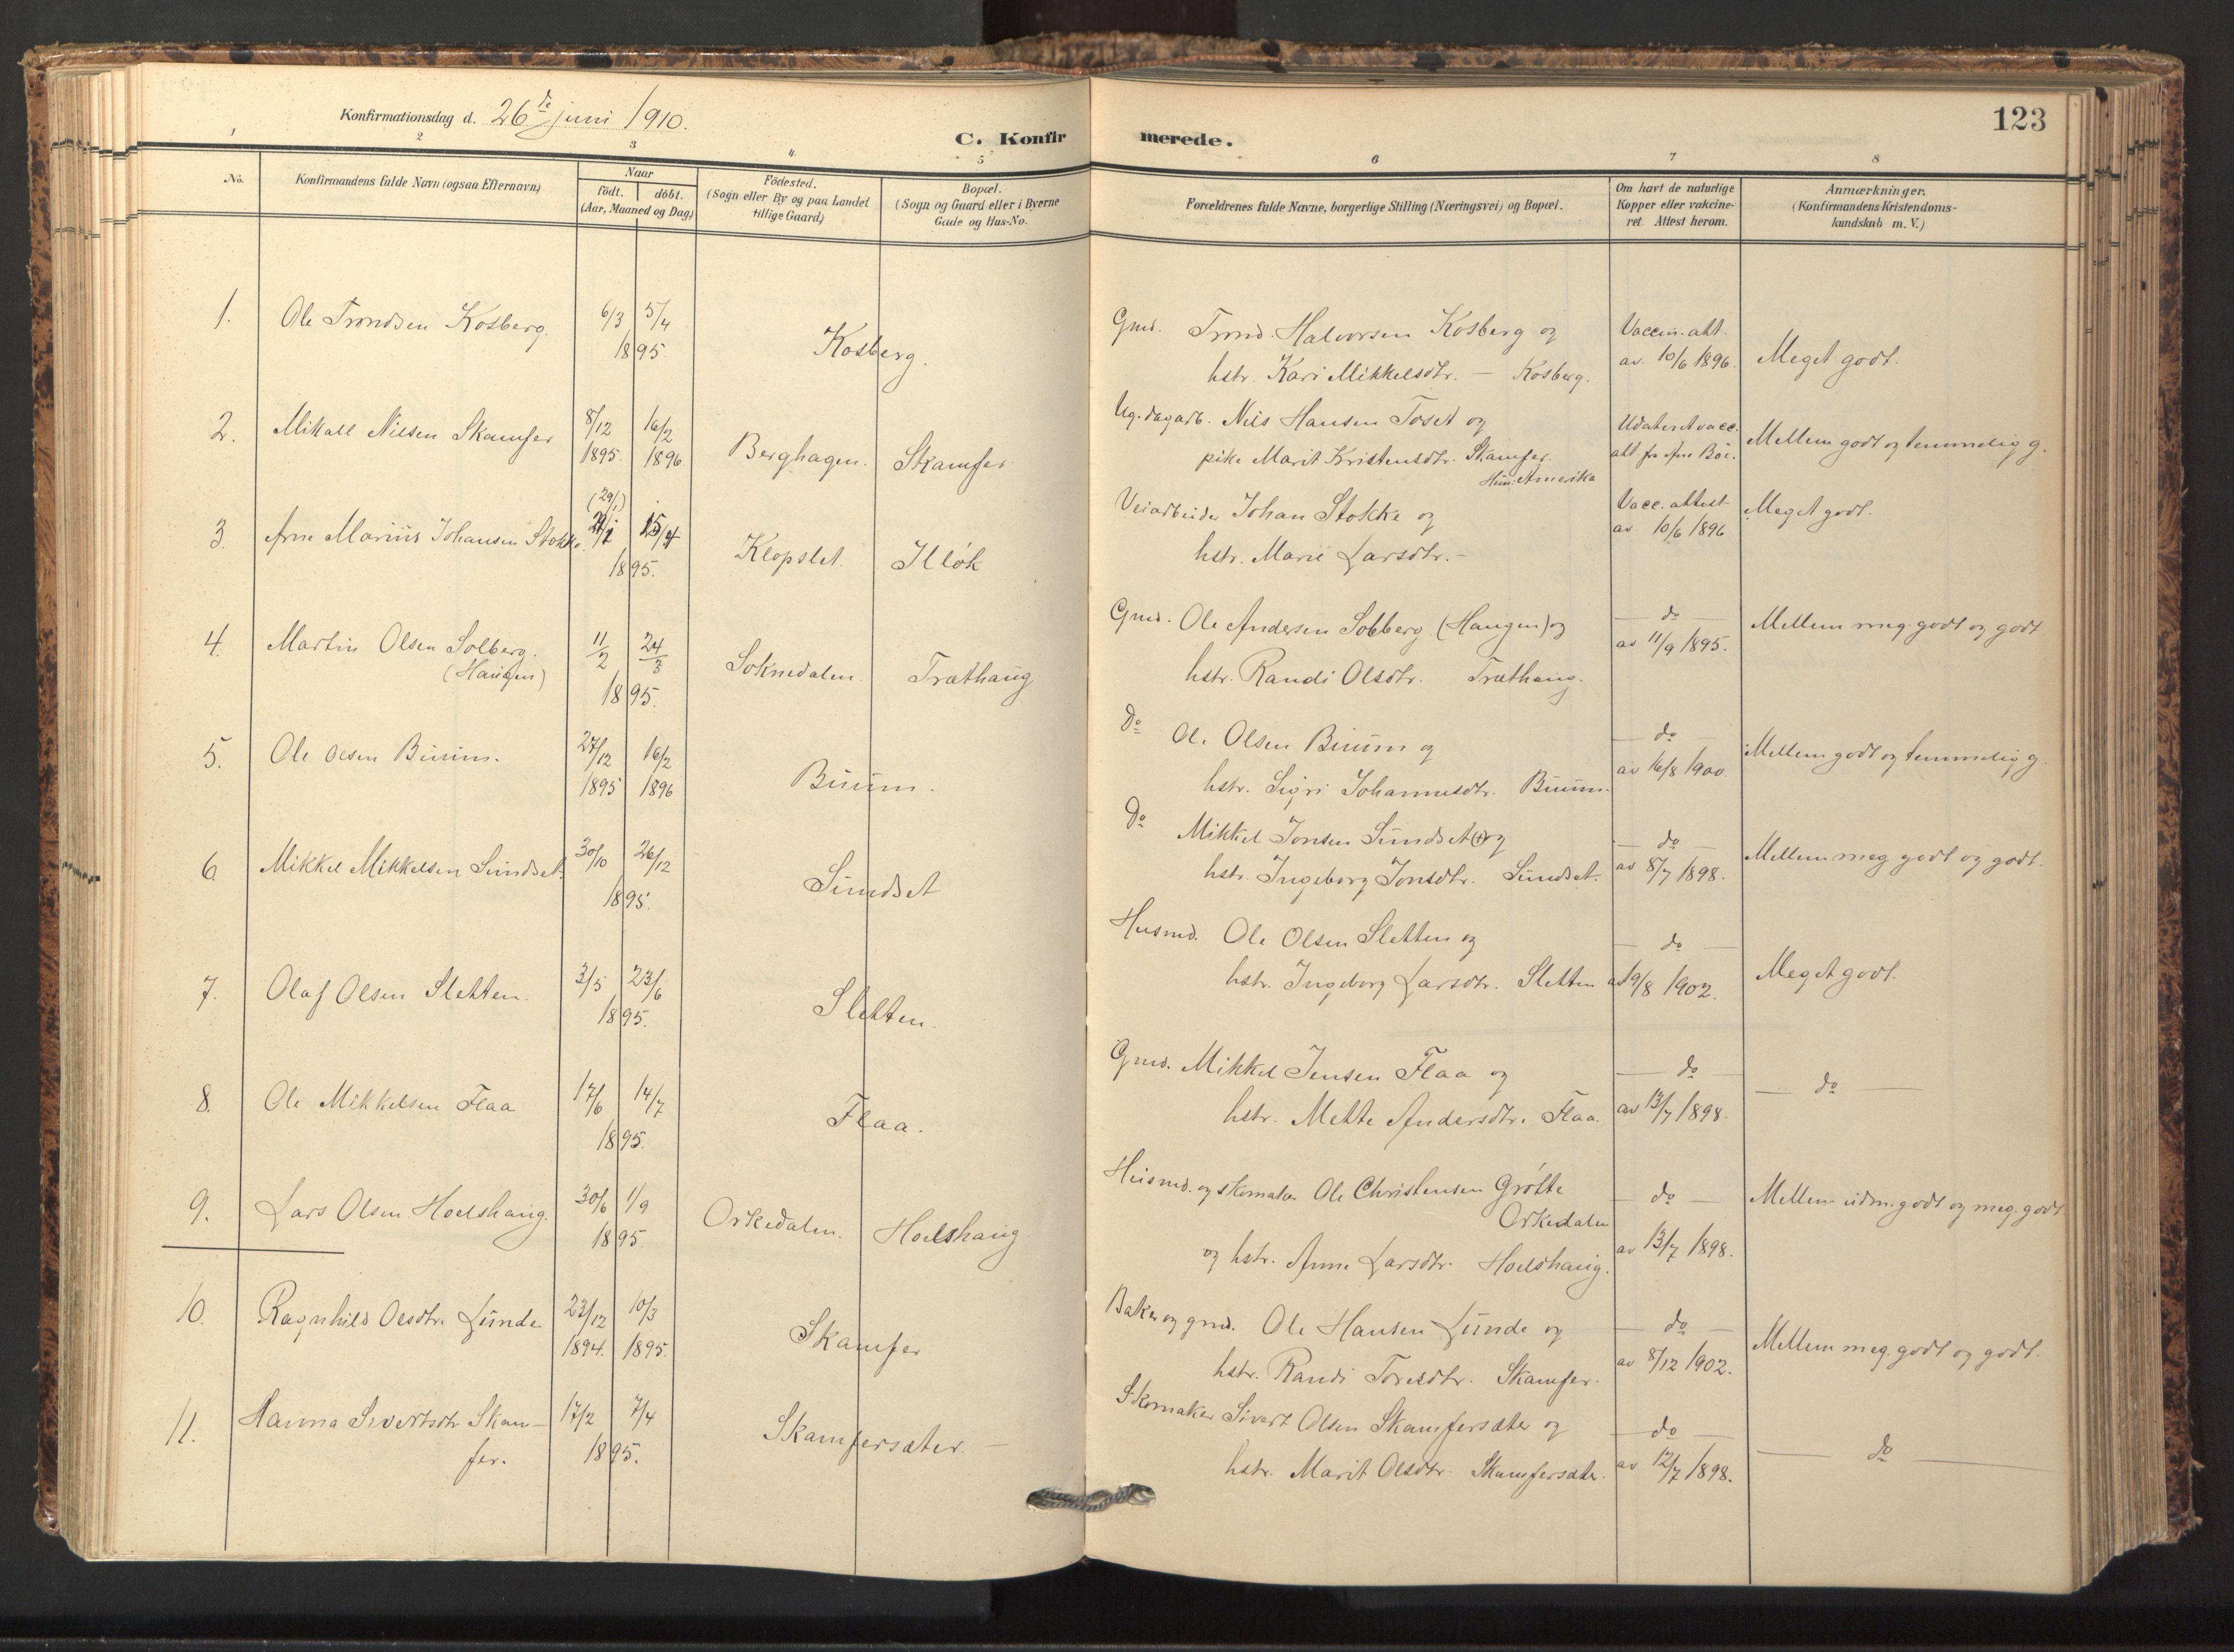 Konfirmationsdag d. 26de juni 1910.
C. Konfirmerede.
123
1 2 3 4. 5 6 7 8
No. Konfirmandens fulde Navn (ogsaa Efternavn)
Naar
födt. döbt.
(Aar, Maaned og Dag)
Födested.
(Sogn eller By og paa Landet
tillige Gaard)
Bopæl.
(Sogn og Gaard eller i Byerne
Gade og Hus-No.
Forældrenes fulde Navne, borgerlige Stilling (Næringsvei) og Bopæl.
Om havt de naturlige
Kopper eller vakcine-
ret. Attest herom.
Anmærkninger.
(Konfirmandens Kristendoms-
kundskab m. V.)
1. Ole Trondsen Kosberg. 6/3 5/4 Gmd. Trond Halvorsen Kosberg og Vaccin. att.
1895. Kosberg. hstr. Kari Mikkelsdtr. — Kosberg. av. 10/6 1896. Meget godt.
2. Mikall Nilsen Skamfer 8/12 16/2 Ug. dagarb. Nils Hansen Toset og Udateret vacc.
1895. 1896. Berghagen. Skamfer pike Marit Kristensdtr. Skamfer. att. fra Arne Böe. Mellem godt og temmelig g.
Hun: Amerika
(29/1)
3. Arne Marius Johansen Stokke. 15/4 Veiarbeider Johan Stokke og Vacc. attest Meget godt.
1895. Klopslet. Illök hstr. Marie Larsdtr. – av 10/6 1896
4. Martin Olsen Solberg. 11/2 24/3 Gmd. Ole Andersen Solberg (Haugen) og — do — Mellem meg. godt og godt
(Haugen) 1895. Soknedalen. Træthaug hstr. Randi Olsdtr. Træthaug. av 11/9 1895.
5. Ole Olsen Buum. 27/12 16/2 Do Ole Olsen Buum og — do — Mellem godt og temmelig g.
1895 1896 Buum. hstr. Sigri Johannesdtr. Buum. av 16/8 1900.
6. Mikkel Mikkelsen Sundset. 30/10 26/12 Do Mikkel Jonsen Sundset (+) og — do — Mellem meg godt og godt.
1895. Sundset hstr. Ingeborg Jonsdtr. Sundset. av 8/7 1898.
7. Olaf Olsen Sletten. 3/5 23/6 Husmd. Ole Olsen Sletten og — do — Meget godt.
1895. Sletten. hstr. Ingeborg Larsdtr. Sletten av 19/8 1902.
8. Ole Mikkelsen Flaa 17/6 14/7 Gmd. Mikkel Jensen Flaa og — do — — do —
1895. Flaa. hstr. Mette Andersdtr. Flaa. av 13/7 1898.
9. Lars Olsen Hoelshaug. 30/6 1/9 Husmd. og skomaker Ole Christensen Grötte — do — Mellem udm. godt og meg. godt
1895. Orkedalen. Hoelshaug Orkedalen
og hstr. Anne Larsdtr. Hoelshaug. av 13/7 1898.
10. Ragnhild Olsdtr. Lunde 23/12 10/3 Baker og gmd. Ole Hansen Lunde og — do — Mellem meg. godt og godt.
1894. 1895. Skamfer hstr. Randi Toresdtr. Skamfer. av 8/12 1902.
11. Hanna Sivertsdtr Skam- 17/2 7/4 Skomaker Sivert Olsen Skamfersæter og — do — — do —
fer. 1895. Skamfersæter. — hstr. Marit Olsdtr. Skamfersæter. av 12/7 1898.